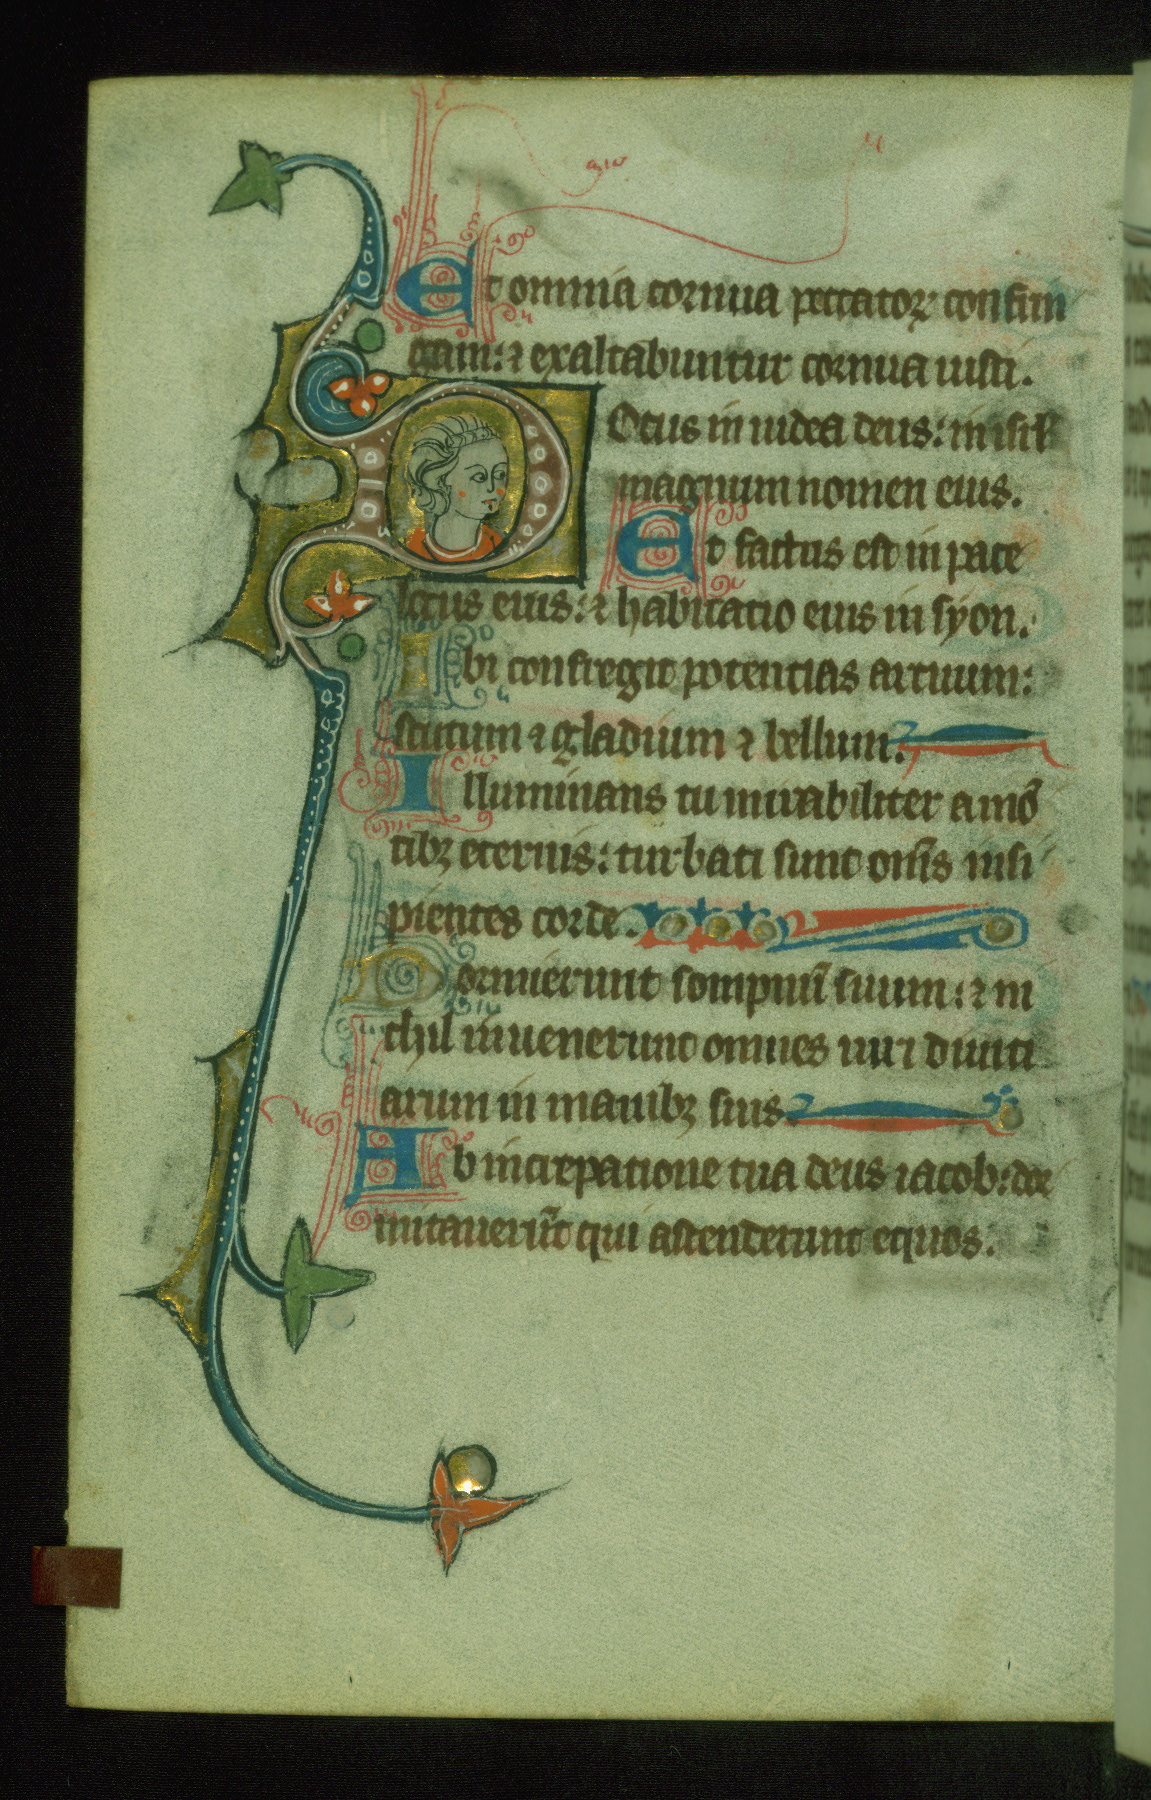 Et omnia cornua peccatoꝝ confrin
gam: ⁊ exaltabuntur cornua iusti.
Notus in iudea deus: in isrł
magnum nomen eius.
Et factus est in pace
locus eius: ⁊ habitatio eius in syon.
Ibi confregit potentias arcuum:
scutum ⁊ gladium ⁊ bellum.
Illuminans tu mirabiliter a mō
tibꝫ eternis: turbati sunt om̅s insi
pientes corde.
Dormierunt sompnū suum: ⁊ ni
chil inuenerunt omnes uiri diuiti
arum in manibꝫ suis.
Ab increpatione tua deus iacob: dor
mitauerūt qui ascenderunt equos.